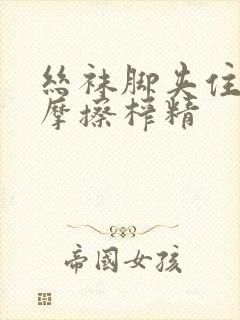 丝袜脚夹住
摩擦榨精
帝國女孩